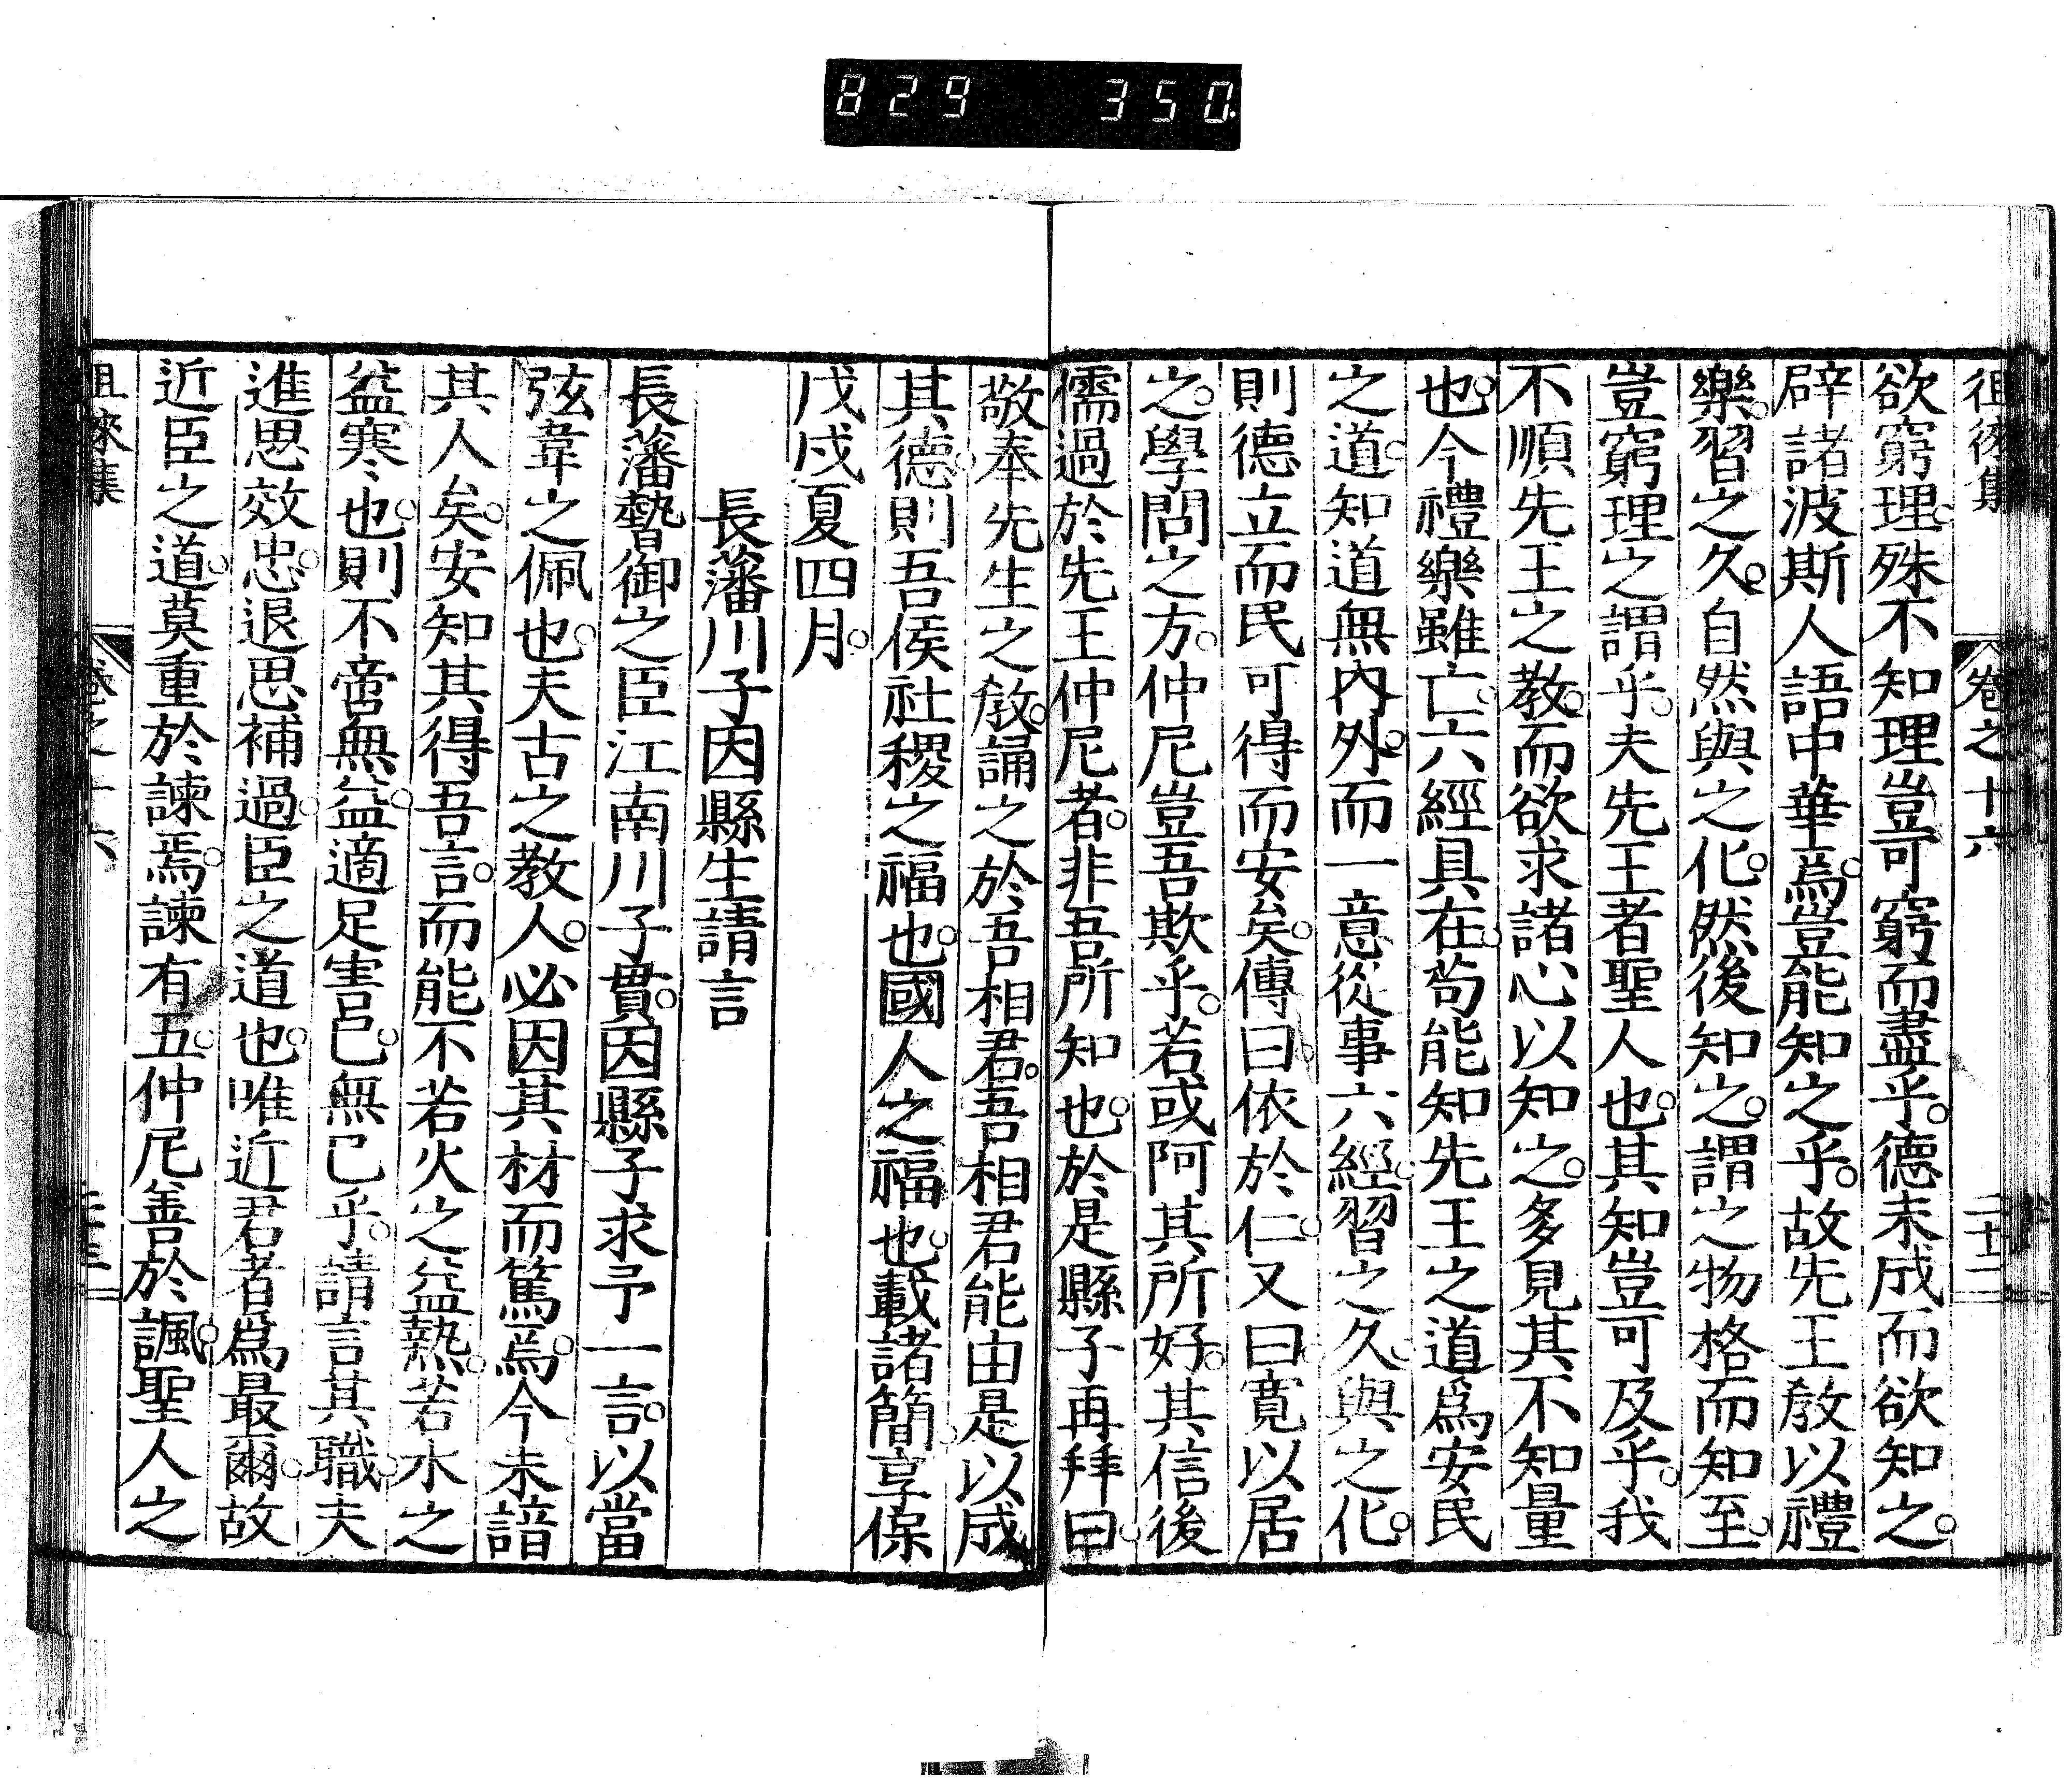 829 350
徂徠集 卷之十六 二十二
欲窮理。殊不知理豈可窮而盡乎。德未成而欲知之。
辟諸波斯人語中華焉。豈能知之乎。故先王敎以禮
樂。習之久。自然與之化。然後知之。謂之物格而知至。
豈窮理之謂乎。夫先王者聖人也。其知豈可及乎。我
不順先王之教。而欲求諸心以知之。多見其不知量
也。今禮樂雖亡。六經具在。苟能知先王之道爲安民
之道。知道無內外。而一意從事六經。習之久。與之化。
則德立而民可得而安矣。傳曰。依於仁。又曰。寬以居
之。學問之方。仲尼豈吾欺乎。若或阿其所好。其信後
儒過於先王仲尼者。非吾所知也。於是縣子再拜曰。
敬奉先生之敎。誦之於吾相君。吾相君能由是以成
其德。則吾侯社稷之福也。國人之福也。載諸簡。享保
戊戌夏四月。
長藩川子因縣生請言
長藩暬御之臣江南川子貫。因縣子求予一言。以當
弦韋之佩也。夫古之教人。必因其材而篤焉。今未諳
其人矣。安知其得吾言。而能不若火之益熱。若水之
益寒也。則不啻無益。適足害已。已無已乎。請言其職。夫
進思效忠。退思補過。臣之道也。唯近君者爲最爾。故
近臣之道。莫重於諫焉。諫有五。仲尼善於諷。聖人之
徂徠集 卷之十六